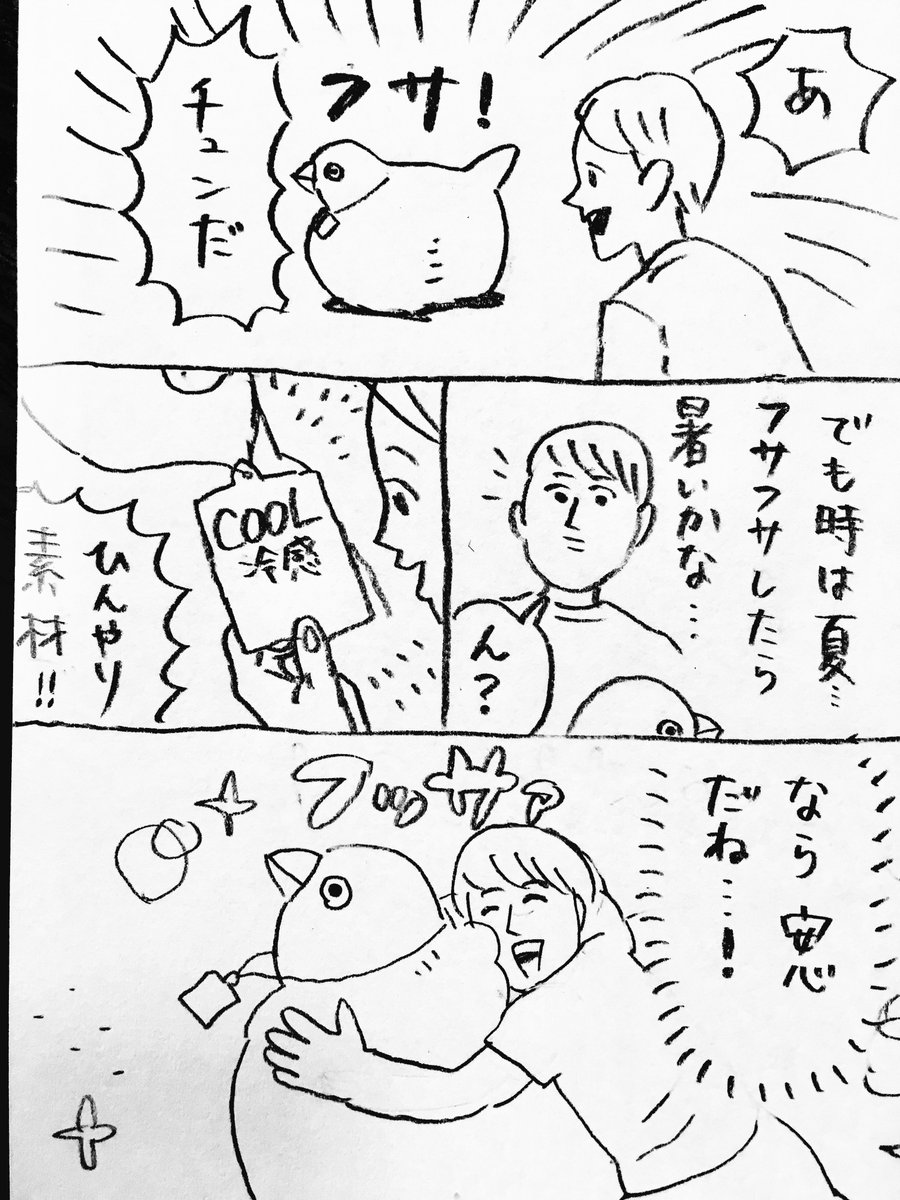 あ
フサ！
チュンだ
でも時は夏…
フサフサしたら
暑いかな…
ん？
COOL
冷感
ひんやり
素材!!
フッサァ
なら安心
だね…！